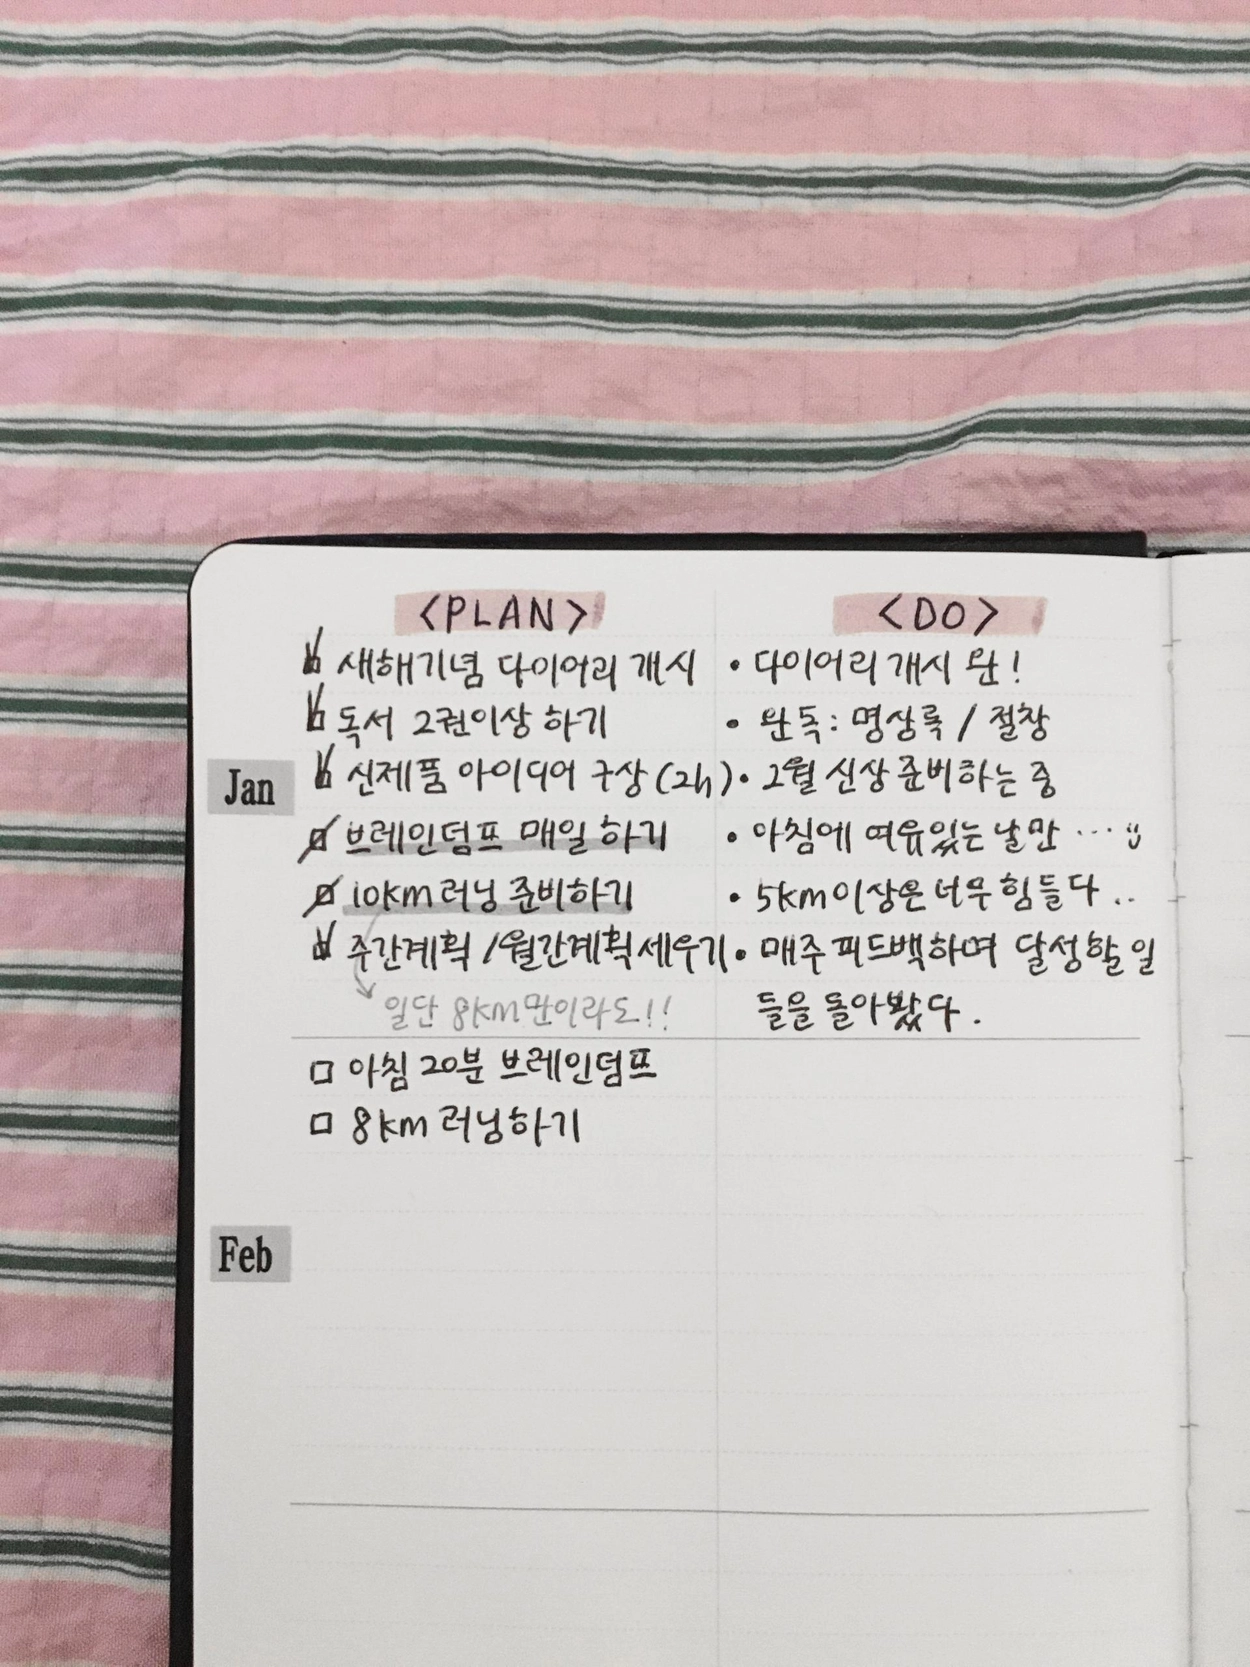 <PLAN>
<DO>
새해기념 다이어리 개시
• 다이어리 개시 완!
독서 2권이상 하기
• 완독: 명상록 / 절창
Jan
신제품 아이디어 구상(2h)
• 2월 신상 준비하는 중
브레인덤프 매일 하기
• 아침에 여유있는 날만 ...
10km 러닝 준비하기
• 5km 이상은 너무 힘들다..
주간계획 / 월간계획 세우기
• 매주 피드백하며 달성할 일
일단 8km만이라도!!
들을 돌아봤다.
□ 아침 20분 브레인덤프
□ 8km 러닝하기
Feb